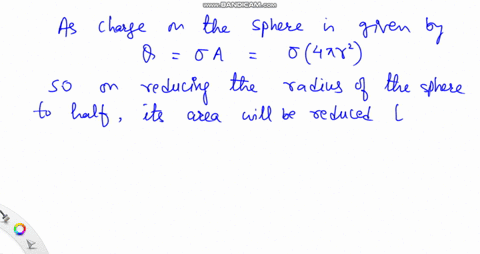 www.BANDICAM.com
As charge on the sphere is given by
Q = σA = σ(4πr²)
so on reducing the radius of the sphere
to half, its area will be reduced (